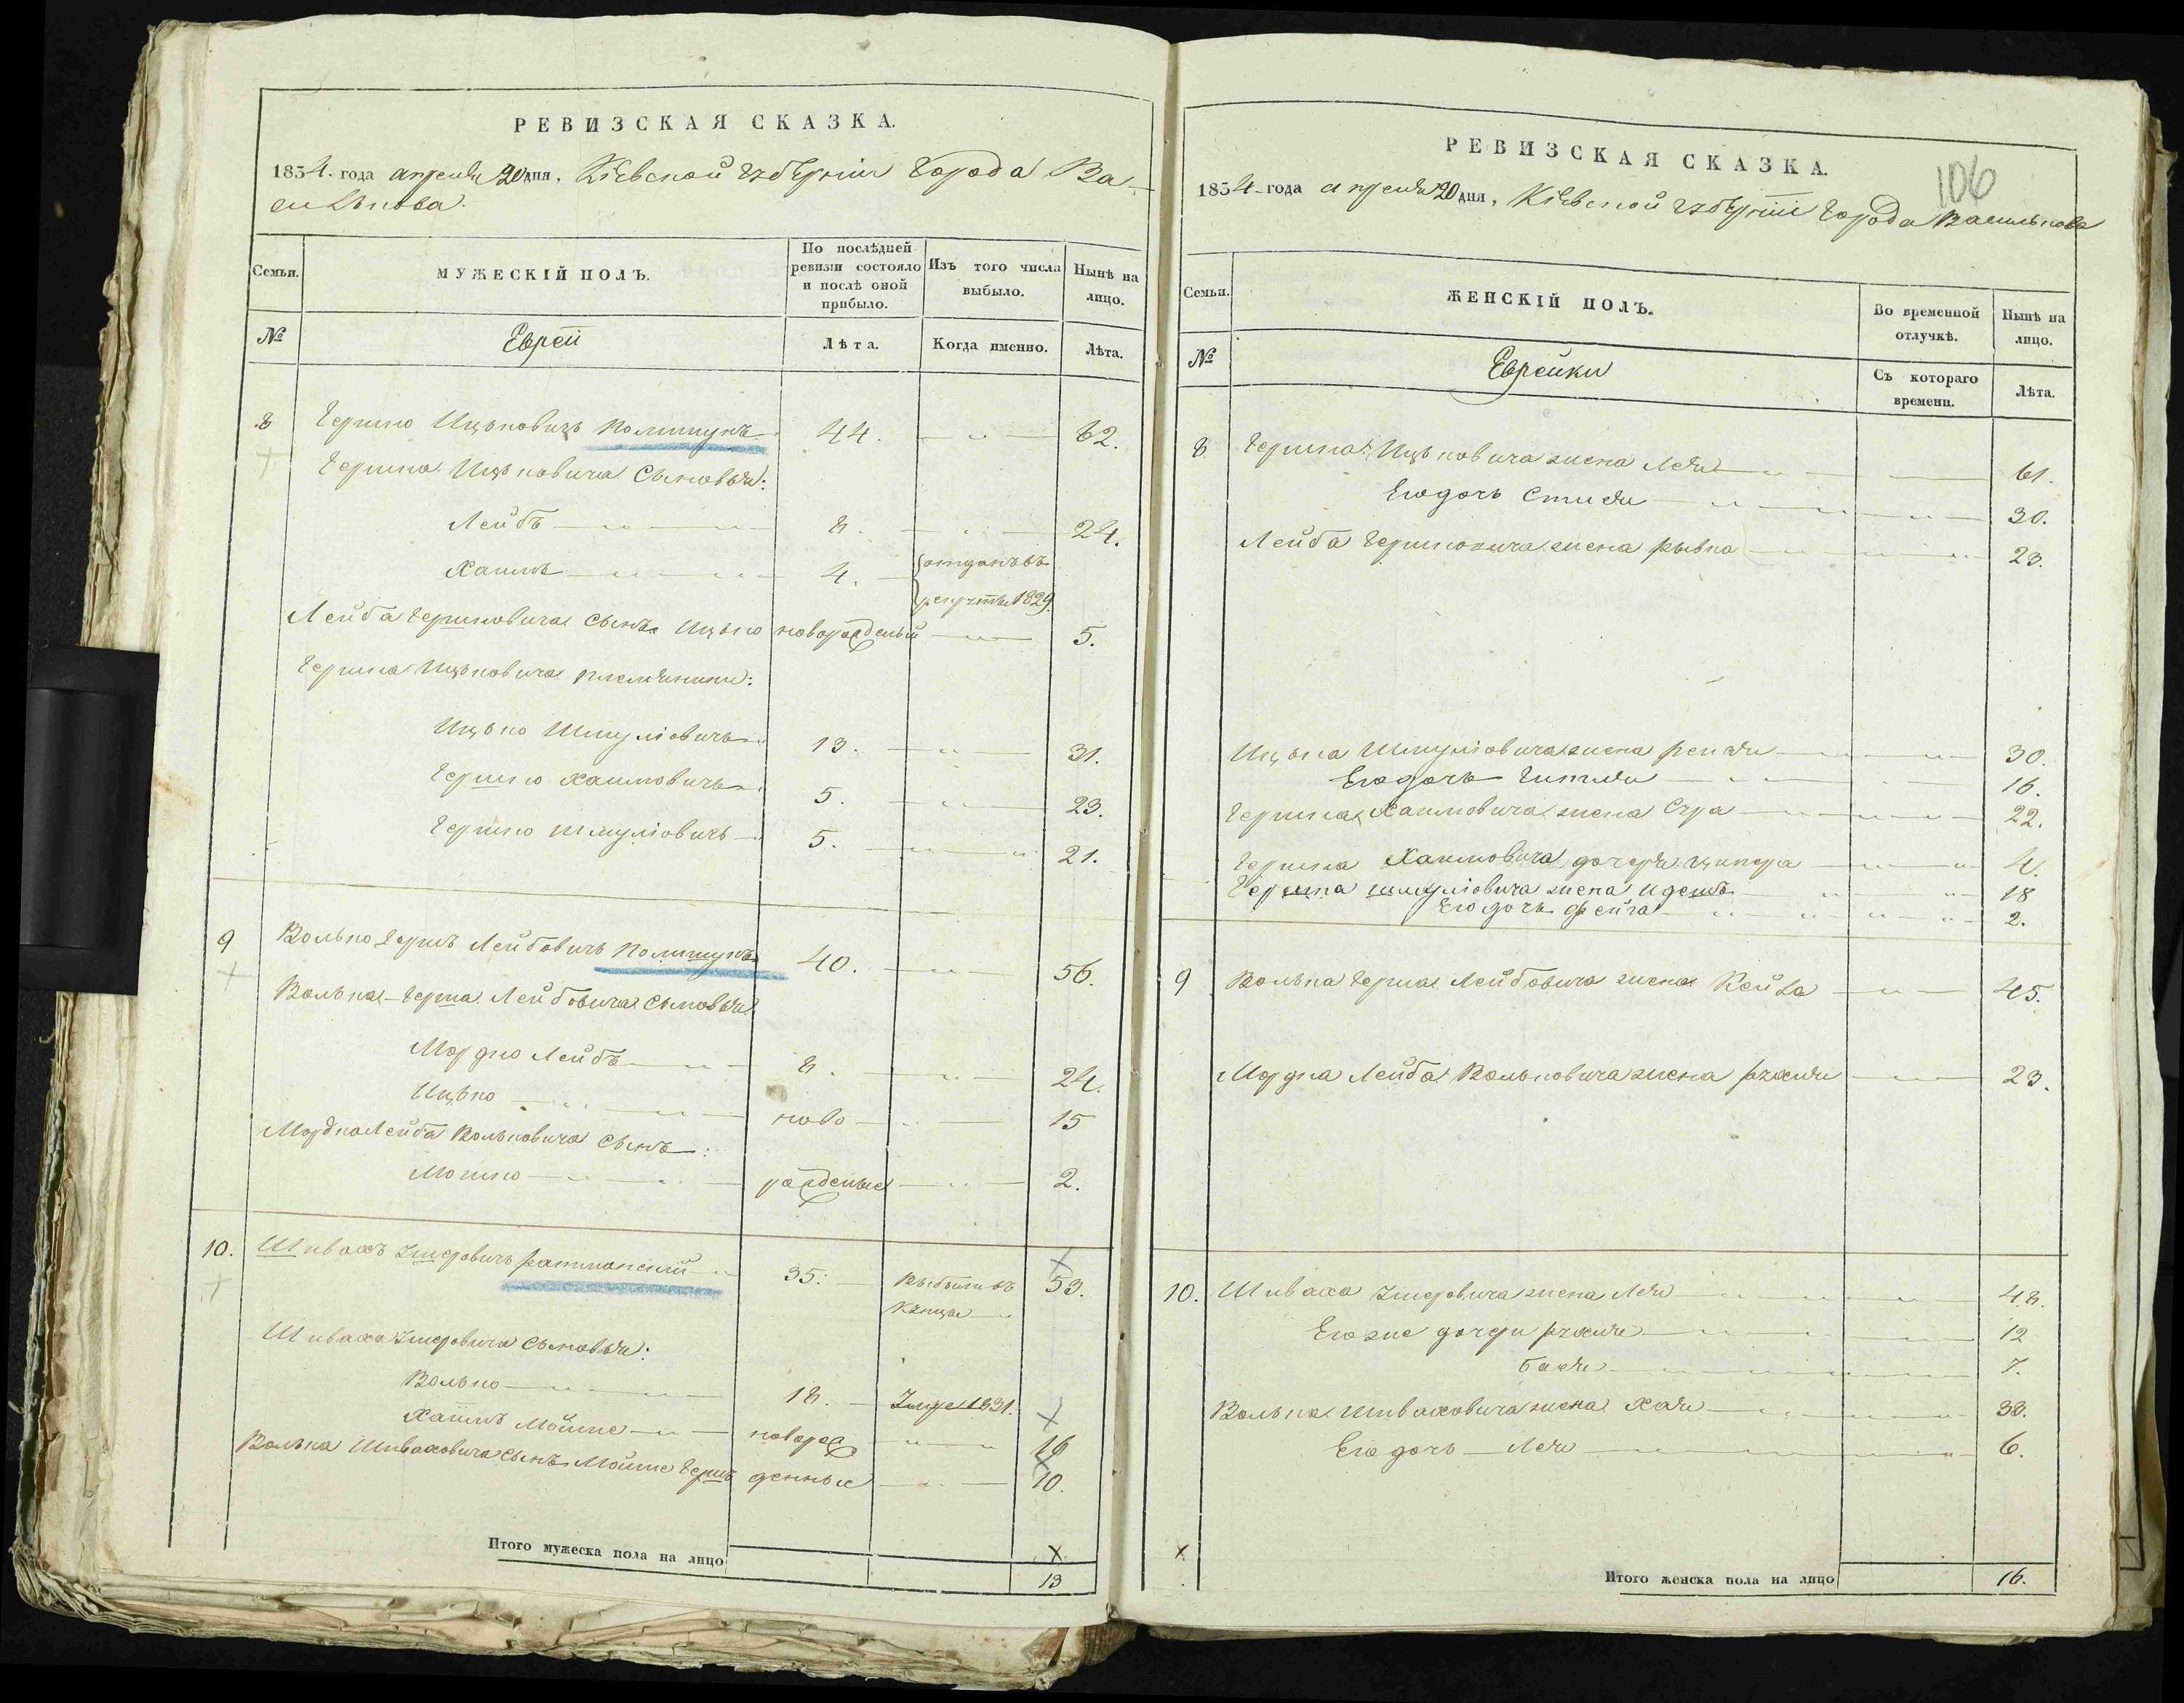 РЕВИЗСКАЯ СКАЗКА.
1834. года апреля 20 дня, Кіевской губерніи города Ва-
силькова.
Семьи.
МУЖЕСКІЙ ПОЛЪ.
По послѣдней ревизіи состояло и послѣ оной прибыло.
Изъ того числа выбыло.
Нынѣ на лицо.
№
Евреи
Лѣта.
Когда именно.
Лѣта.
8 Гершко Ицьковичъ Полищукъ 44. 62.
Гершка Ицьковича сыновья:
Лейбъ 8. 24.
Хаимъ 4. отданъ въ
рекруты 1829.
Лейба Гершковича сынъ Ицько новорожденый 5.
Гершка Ицьковича племяники:
Ицько Шмуліовичъ 13. 31.
Гершко Хаимовичъ 5. 23.
Гершко Шмуліовичъ 5. 21.
9 Волько Гершъ Лейбовичъ Полищукъ 40. 56.
Волька-Герша Лейбовича сыновья
Мордко Лейбъ 8. 24.
Ицько ново 15
Мордка Лейба Вольковича сынъ:
Мошко рожденые 2.
10. Шивахъ 35. выбыли въ 53.
купцы
Шиваха сыновья:
Волько 18. 1831.
Хаимъ Мойше новорож 16
Волька Шиваховича сынъ Мойше Гершъ денные 10.
Итого мужеска пола на лицо
13
РЕВИЗСКАЯ СКАЗКА.
106
1834 года апреля 20 дня, Кіевской губерніи города Василькова
Семьи.
ЖЕНСКІЙ ПОЛЪ.
Во временной отлучкѣ.
Нынѣ на лицо.
№
Еврейки
Съ котораго времени.
Лѣта.
8 Гершка Ицьковича жена Лея 61.
Его дочь 30.
Лейба Гершковича жена Рывка 23.
Ицька Шмуліовича жена 30.
Его дочь Гитля 16.
Гершка Хаимовича жена Сура 22.
Гершка Хаимовича дочеря Ципра 4.
Гершка Шмуліовича жена Идешъ 18
Его дочь Фейга 2.
9 Волька Герша Лейбовича жена Кейла 45.
Мордка Лейба Вольковича жена Рухля 23.
10. Шиваха жена Лея 48.
Его же дочери Рухля 12
Бася 7.
Волька Шиваховича жена Хая 33.
Его дочь Лея 6.
Итого женска пола на лицо
16.